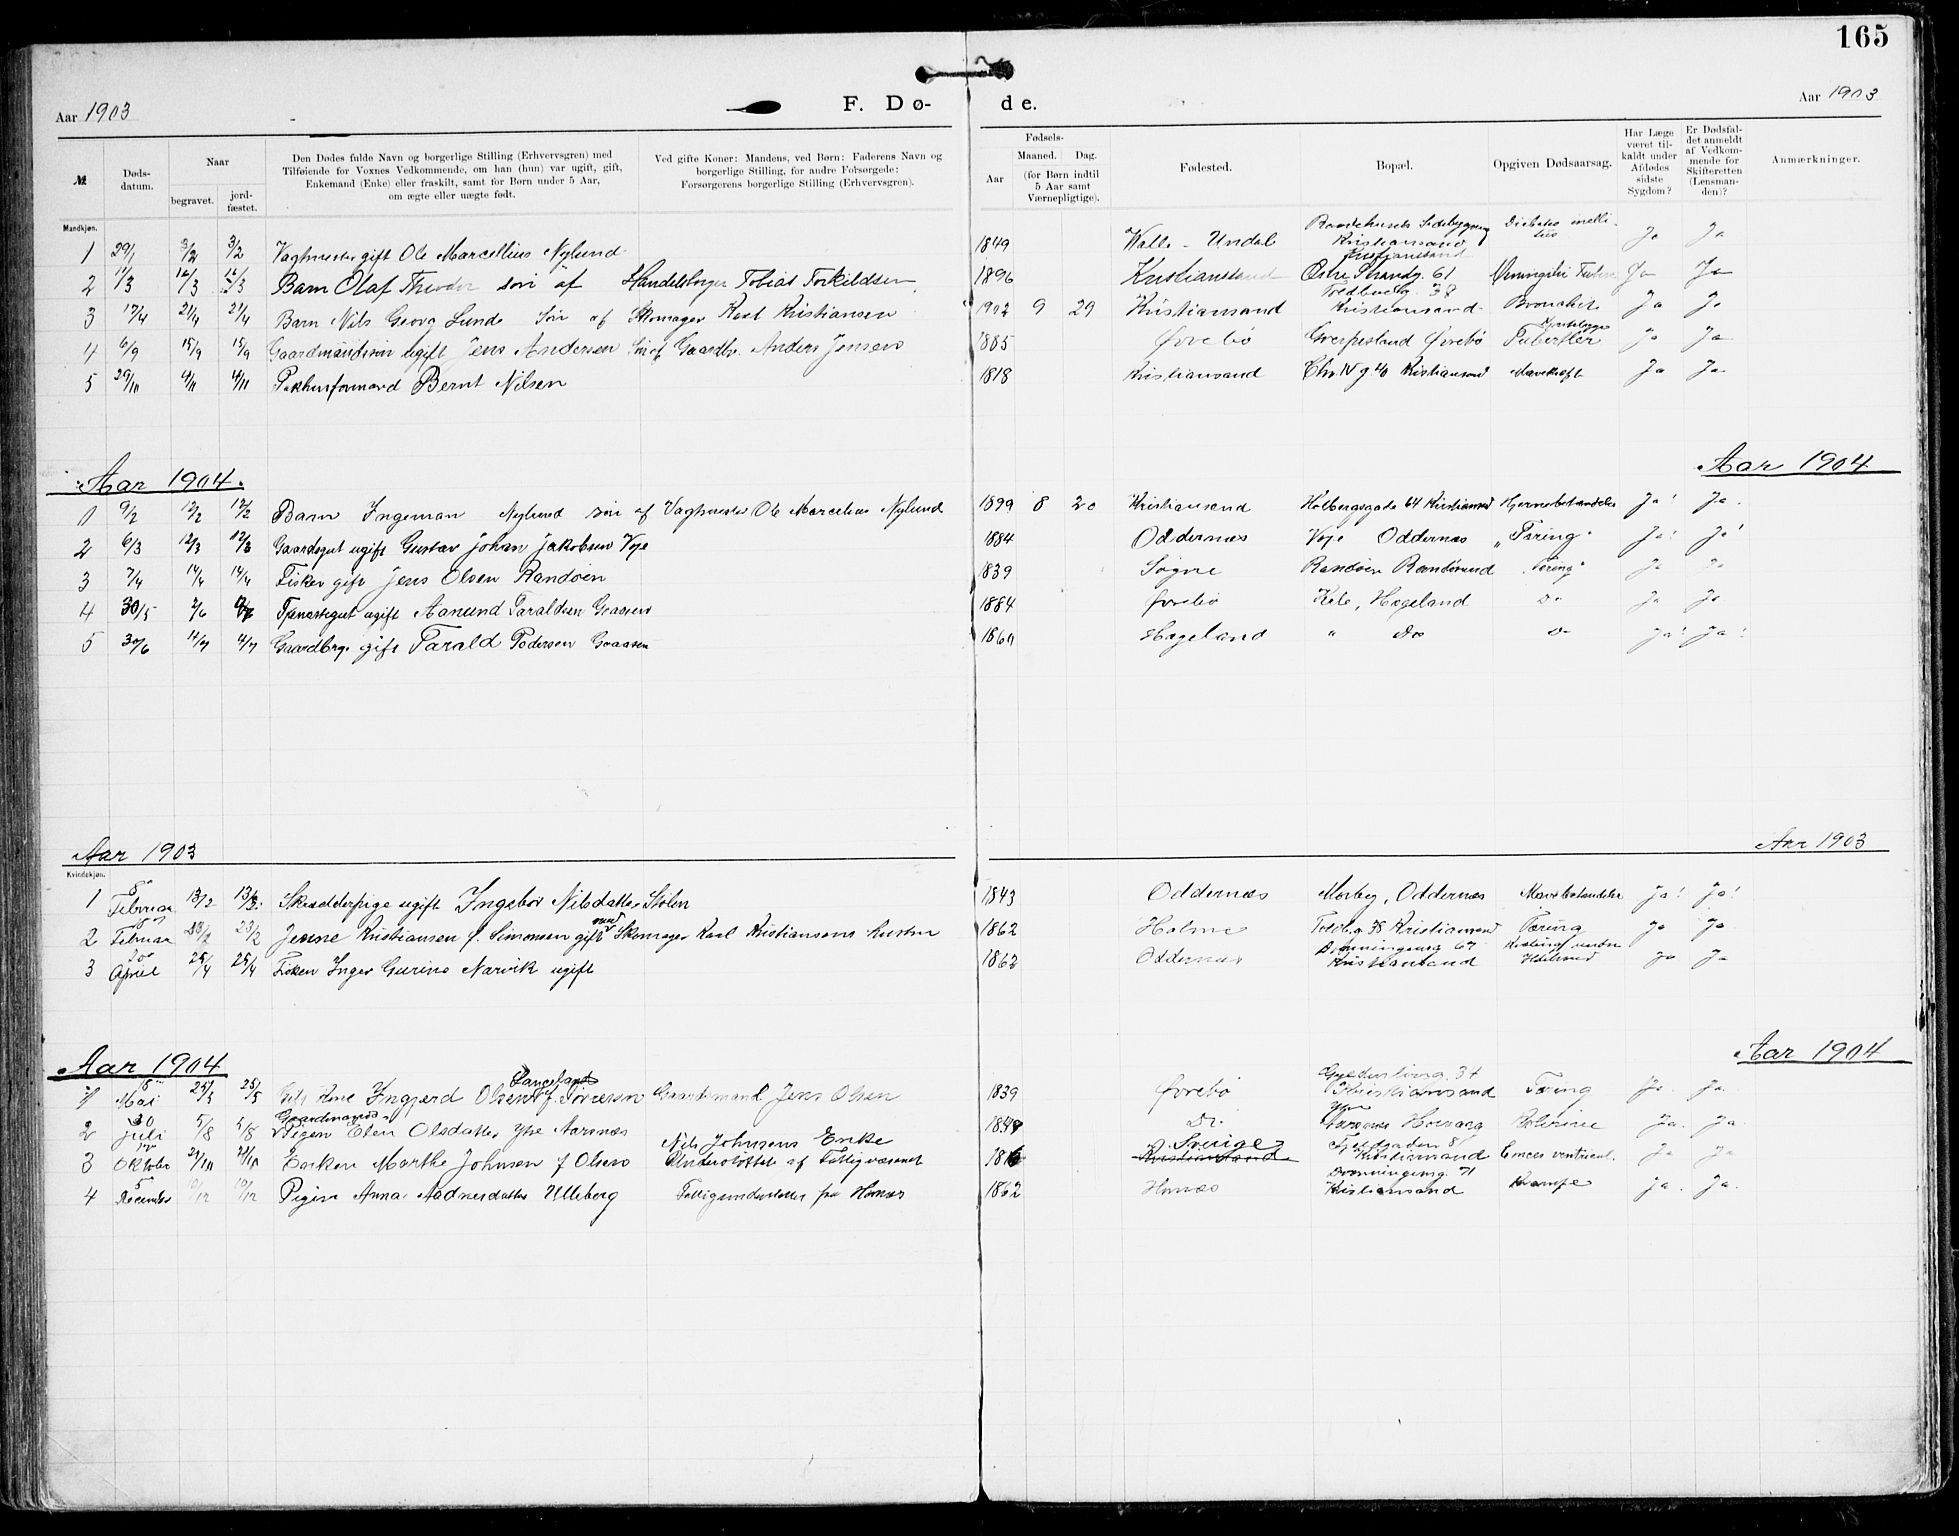 165
Aar 1903 F. Dø- de. Aar 1903
№
Døds-datum.
Naar
begravet.
jord-fæstet.
Den Dødes fulde Navn og borgerlige Stilling (Erhvervsgren) med
Tilføiende for Voxnes Vedkommende, om han (hun) var ugift, gift,
Enkemand (Enke) eller fraskilt, samt for Børn under 5 Aar,
om ægte eller uægte født.
Ved gifte Koner: Mandens, ved Børn: Faderens Navn og
borgerlige Stilling, for andre Forsørgede:
Forsørgerens borgerlige Stilling (Erhvervsgren).
Fødsels-
Aar
Maaned. Dag.
(for Børn indtil
5 Aar samt
Værnepligtige).
Fødested.
Bopæl.
Opgiven Dødsaarsag.
Har Læge
været til-
kaldt under
Afdødes
sidste
Sygdom?
Er Dødsfal-
det anmeldt
af Vedkom-
mende for
Skifteretten
(Lensman-
den)?
Anmærkninger.
Mandkjøn.
1 29/1 3/2 3/2 Vagtmester gift Ole Marcellius Nylund 1849 Valle - Undal Kristiansand Diabetes melli- Ja Ja
2 11/3 16/3 16/3 Barn Olaf Theodor søn af Handelsborger Tobias Torkildsen 1896 Kristiansand Østre Strandg. 61 Kristiansand Ja Ja
3 17/4 21/4 21/4 Barn Nils Georg Lunde søn af Skomager Karl Kristiansen 1902 9 29 Kristiansand Toldbodg. 38 Kristiansand Ja Ja
4 6/9 15/9 15/9 Gaardmandssøn ugift Jens Andersen Søn af Gaardbr. Anders Jensen 1885 Øvrebø Øvrebø Ja Ja
5 29/10 4/11 4/11 Pakhusformand Bernt Nilsen 1818 Kristiansand Chr. IV g. 40 Kristiansand Mavekræft Ja Ja
Aar 1904. Aar 1904
1 9/2 12/2 12/2 Barn Ingeman Nylund søn af Vagtmester Ole Marcelius Nylund 1899 8 20 Kristiansand Holbergsgade 64 Kristiansand Hjernebetændelse Ja! Ja.
2 6/3 12/3 12/3 Gaardsgut ugift Gustav Johan Jakobsen Voje 1884 Oddernæs Voje Oddernæs „Tæring" Ja! Ja!
3 7/4 14/4 14/4 Fisker gift Jens Olsen Randøen 1839 Søgne Randøen Randøsund „Tæring" Ja Ja
4 30/5 Tjenestegut ugift Aanund Taraldsen Graasen 1884 Øvrebø Hægeland Do Ja Ja
5 30/6 4/7 Gaardbrg. gift Tarald Pedersen Graasen Hægeland " Do Do Ja! Ja!
Aar 1903 Aar 1903
Kvindekjøn.
1 8 Februar 13/2 13/2 Skrædderpige ugift Ingebor Nilsdatter Stølen 1843 Oddernæs Mosby, Oddernæs Mavebetændelse Ja! Ja!
2 Februar 23/2 23/2 Jenne Kristiansen f. Simonsen gift med Skomager Karl Kristiansens hustru 1862 Holme Toldb.g. 38 Kristiansand Tæring Ja Ja
3 20 April 25/4 25/4 Frøken Inger Gurine Narvik ugift 1862 Oddernæs Dronningensg 67 Kristiansand Ja Ja
Aar 1904 Aar 1904
1 18 Mai 25/5 25/5 Gift Kone Ingjerd Olsen Langeland Gaardmand Jens Olsen 1839 Øvrebø Gyldenløvsg. 34 Kristiansand Tæring Ja. Ja.
2 30 Juli 5/8 5/8 Gaardmands- Pigen Elen Olsdatter Ytre Aarsnæs Do. Kolerine Ja. Ja.
3 Oktober 21/10 21/10 Enken Marthe Johnsen f Olsen Nils Johnsens Enke Understøttet af Fattigvæsenet Sverige Kristiansand Kristiansand Ja Ja
4 5 December 10/12 10/12 Pigen Anna Aadnesdatter Ulleberg Fattigunderstøttet fra 1862 Dronningensg 71 Kristiansand Krampe Ja. Ja.